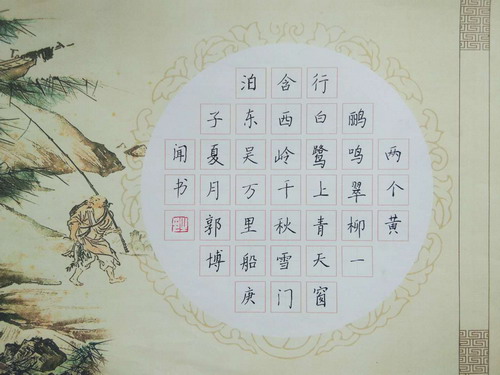 两个黄
鹂鸣翠柳一
行白鹭上青天窗
含西岭千秋雪门
泊东吴万里船庚
子夏月郭博
闻书